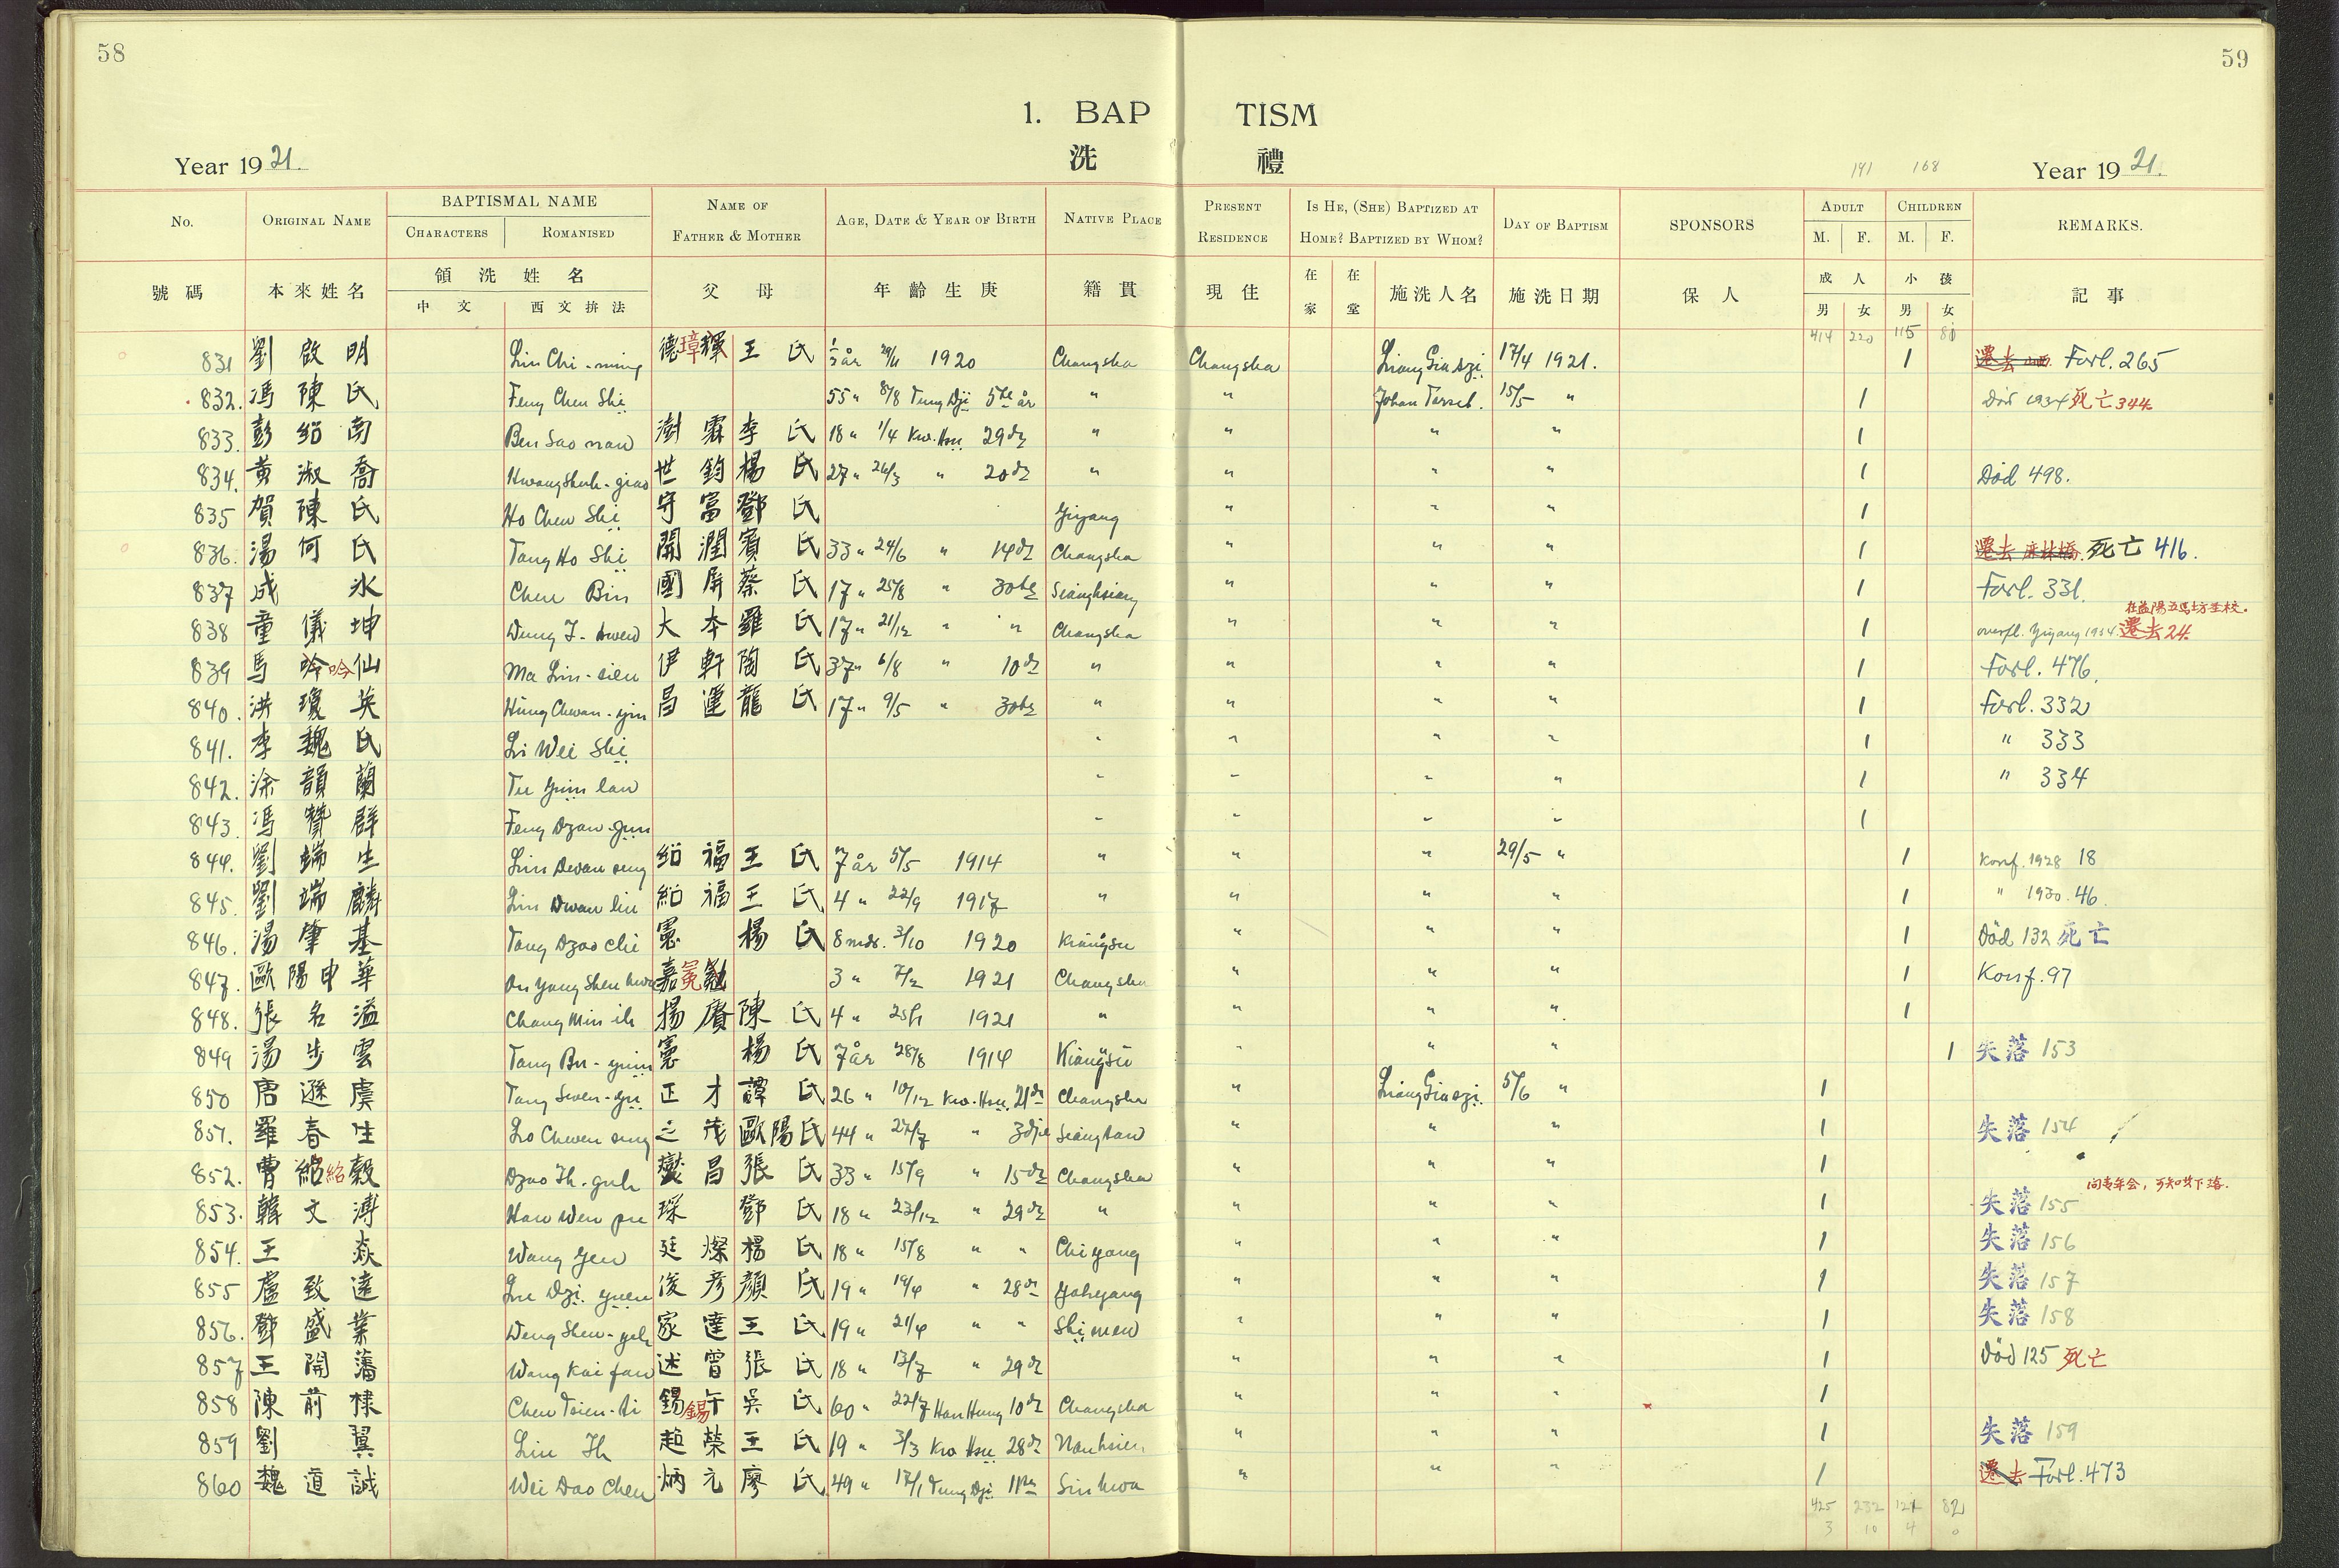 58
59
1. BAP TISM
洗 禮
Year 19 21.
191 168
Year 19 21.
No. ORIGINAL NAME BAPTISMAL NAME CHARACTERS ROMANISED NAME OF FATHER & MOTHER AGE, DATE & YEAR OF BIRTH NATIVE PLACE PRESENT RESIDENCE IS HE, (SHE) BAPTIZED AT HOME? BAPTIZED BY WHOM? DAY OF BAPTISM SPONSORS ADULT M. F. CHILDREN M. F. REMARKS.
號碼 本來姓名 領洗姓名 中文 西文拚法 父母 年齡生庚 籍貫 現住 在家 在堂 施洗人名 施洗日期 保人 成人 男 女 小孩 男 女 記事
414 220 115 81
831 劉啟明 Liu Chi-ming 德璋輝 王氏 ½ år 29/11 1920 Changsha Changsha Liang Giadzi 17/4 1921. 1 遷去 Forl. 265
832. 馮陳氏 Feng Chen Shi 55 " 8/8 Tung Dji 5te år " " Johan Tørset. 15/5 " 1 Död 1934 死亡 344.
833. 彭紹南 Ben Sao nan 澍霖 李氏 18 " 1/4 Kw. Hsu 29de " " " " 1
834. 黄淑喬 Hwang Shuh-giao 世鈞 楊氏 27 " 26/3 " 20de " " " " 1 Död 498.
835 賀陳氏 Ho Chen Shi 守富 鄧氏 Yiyang " " " 1
836. 湯何氏 Tang Ho Shi 開潤 賓氏 33 " 24/6 " 14de Changsha " " " 1 遷去 麻林橋. 死亡 416.
837 成冰 Chen Bin 國屏 蔡氏 17 " 25/8 " 30te Sianghsiang " " " 1 Forl. 331.
838 童儀坤 Dung I-kwen 大本 羅氏 17 " 21/12 " " Changsha " " " 1 overfl. Yiyang 1934. 遷去 24. 在益陽五馬坊堂校.
839 馬吟吟仙 Ma Lin-sien 伊軒 陶氏 37 " 6/8 " 10de " " " " 1 Forl. 476.
840. 洪瓊英 Hung Chwan-yin 昌運 龍氏 17 " 9/5 " 30te " " " " 1 Forl. 332
841. 李魏氏 Li Wei Shi " " " " 1 " 333
842. 涂韻蘭 Tu Yuin lan " " " " 1 " 334
843 馮贊群 Feng Dzan-gun " " " " 1
844. 劉端生 Liu Dwan seng 紹福 王氏 7 år 5/5 1914 " " " 29/5 " 1 Konf. 1928 18
845. 劉端麟 Liu Dwan lin 紹福 王氏 4 " 22/9 1917 " " " " 1 " 1930. 46.
846. 湯肇基 Tang Dzao chi 憲 楊氏 8 mds. 3/10 1920 Kiangsu " " " 1 Död 132 死亡
847. 歐陽申華 Ou Yang Shen hwa 嘉冕勉 3 " 7/2 1921 Changsha " " " 1 Konf. 97
848. 張名溢 Chang Min ih 揚賡 陳氏 4 " 25/1 1921 " " " " 1
849 湯步雲 Tang Bu-yuin 憲 楊氏 7 år 28/8 1914 Kiangsu " " " 1 失落 153
850 唐遜虞 Tang Swen-yu 正才 譚氏 26 " 10/12 Kw. Hsu 21de Changsha " Liang Giadzi 5/6 " 1
851. 羅春生 Lo Chwen seng 之茂 歐陽氏 44 " 27/7 " 3dje Siangtan " " " 1 失落 154
852. 曹紹紹穀 Dzao Ih-guh 爕昌 張氏 33 " 15/9 " 15de Changsha " " " 1
853. 韓文溥 Han Wen pu 琛 鄧氏 18 " 23/12 " 29de " " " " 1 失落 155 向青年会,可知其下落.
854. 王焱 Wang Yen 廷燦 楊氏 18 " 15/8 " " Chiyang " " " 1 失落 156
855 盧致遠 Lu Dzi yuen 俊彦 顏氏 19 " 19/4 " 28de Yohyang " " " 1 失落 157
856. 鄧盛業 Deng Shen-yeh 家達 王氏 19 " 21/4 " " Shimen " " " 1 失落 158
857 王開藩 Wang Kai fan 述曾 張氏 18 " 13/7 " 29de " " " 1 Död 125 死亡
858 陳前棣 Chen Tsien-ti 錫錫午 吳氏 60 " 22/7 Han Hung 10de Changsha " " " 1
859 劉翼 Liu Ih 趙榮 王氏 19 " 3/3 Kw Hsu 28de Nanhsien " " " 1 失落 159
860 魏道誠 Wei Dao Chen 炳元 廖氏 49 " 17/1 Tung Dji 11te Sinhwa " " " 1 遷去 Forl. 473
425 232 121 82
3 10 4 0